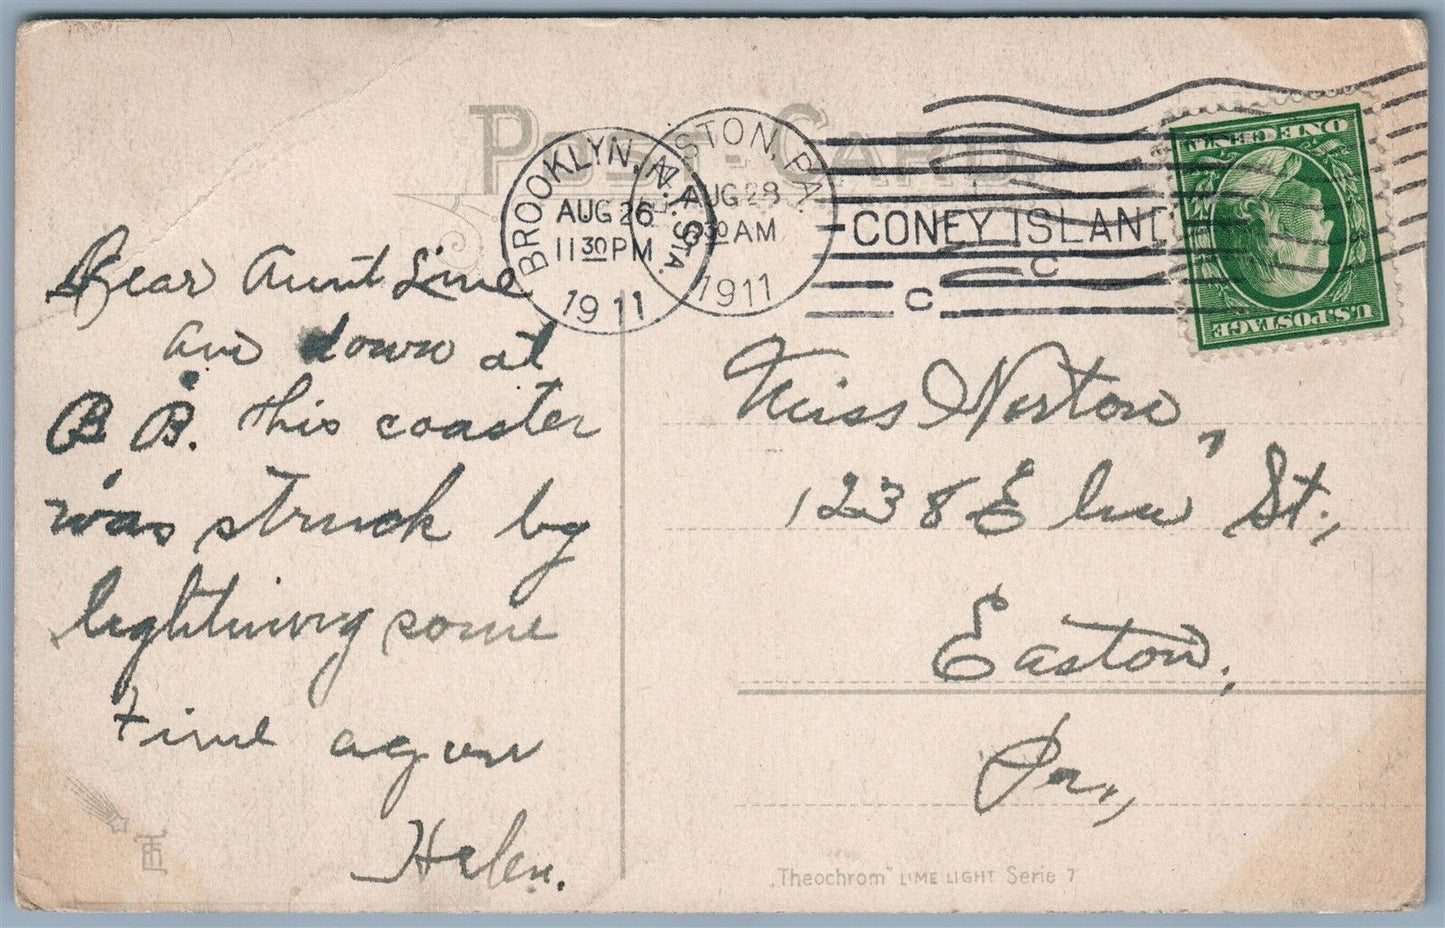 POST CARD
BROOKLYN, N.Y.
STA.
AUG 26
11 30 PM
1911
EASTON, PA.
AUG 28
30 AM
1911
CONEY ISLAND
C
C
U.S. POSTAGE
ONE CENT
Dear Aunt Line
am down at
B B. this coaster
was struck by
lightning some
time agow
Helen.
Miss Norton,
1238 Elm St.,
Easton,
Pa.,
"Theochrom" LIME LIGHT Serie 7